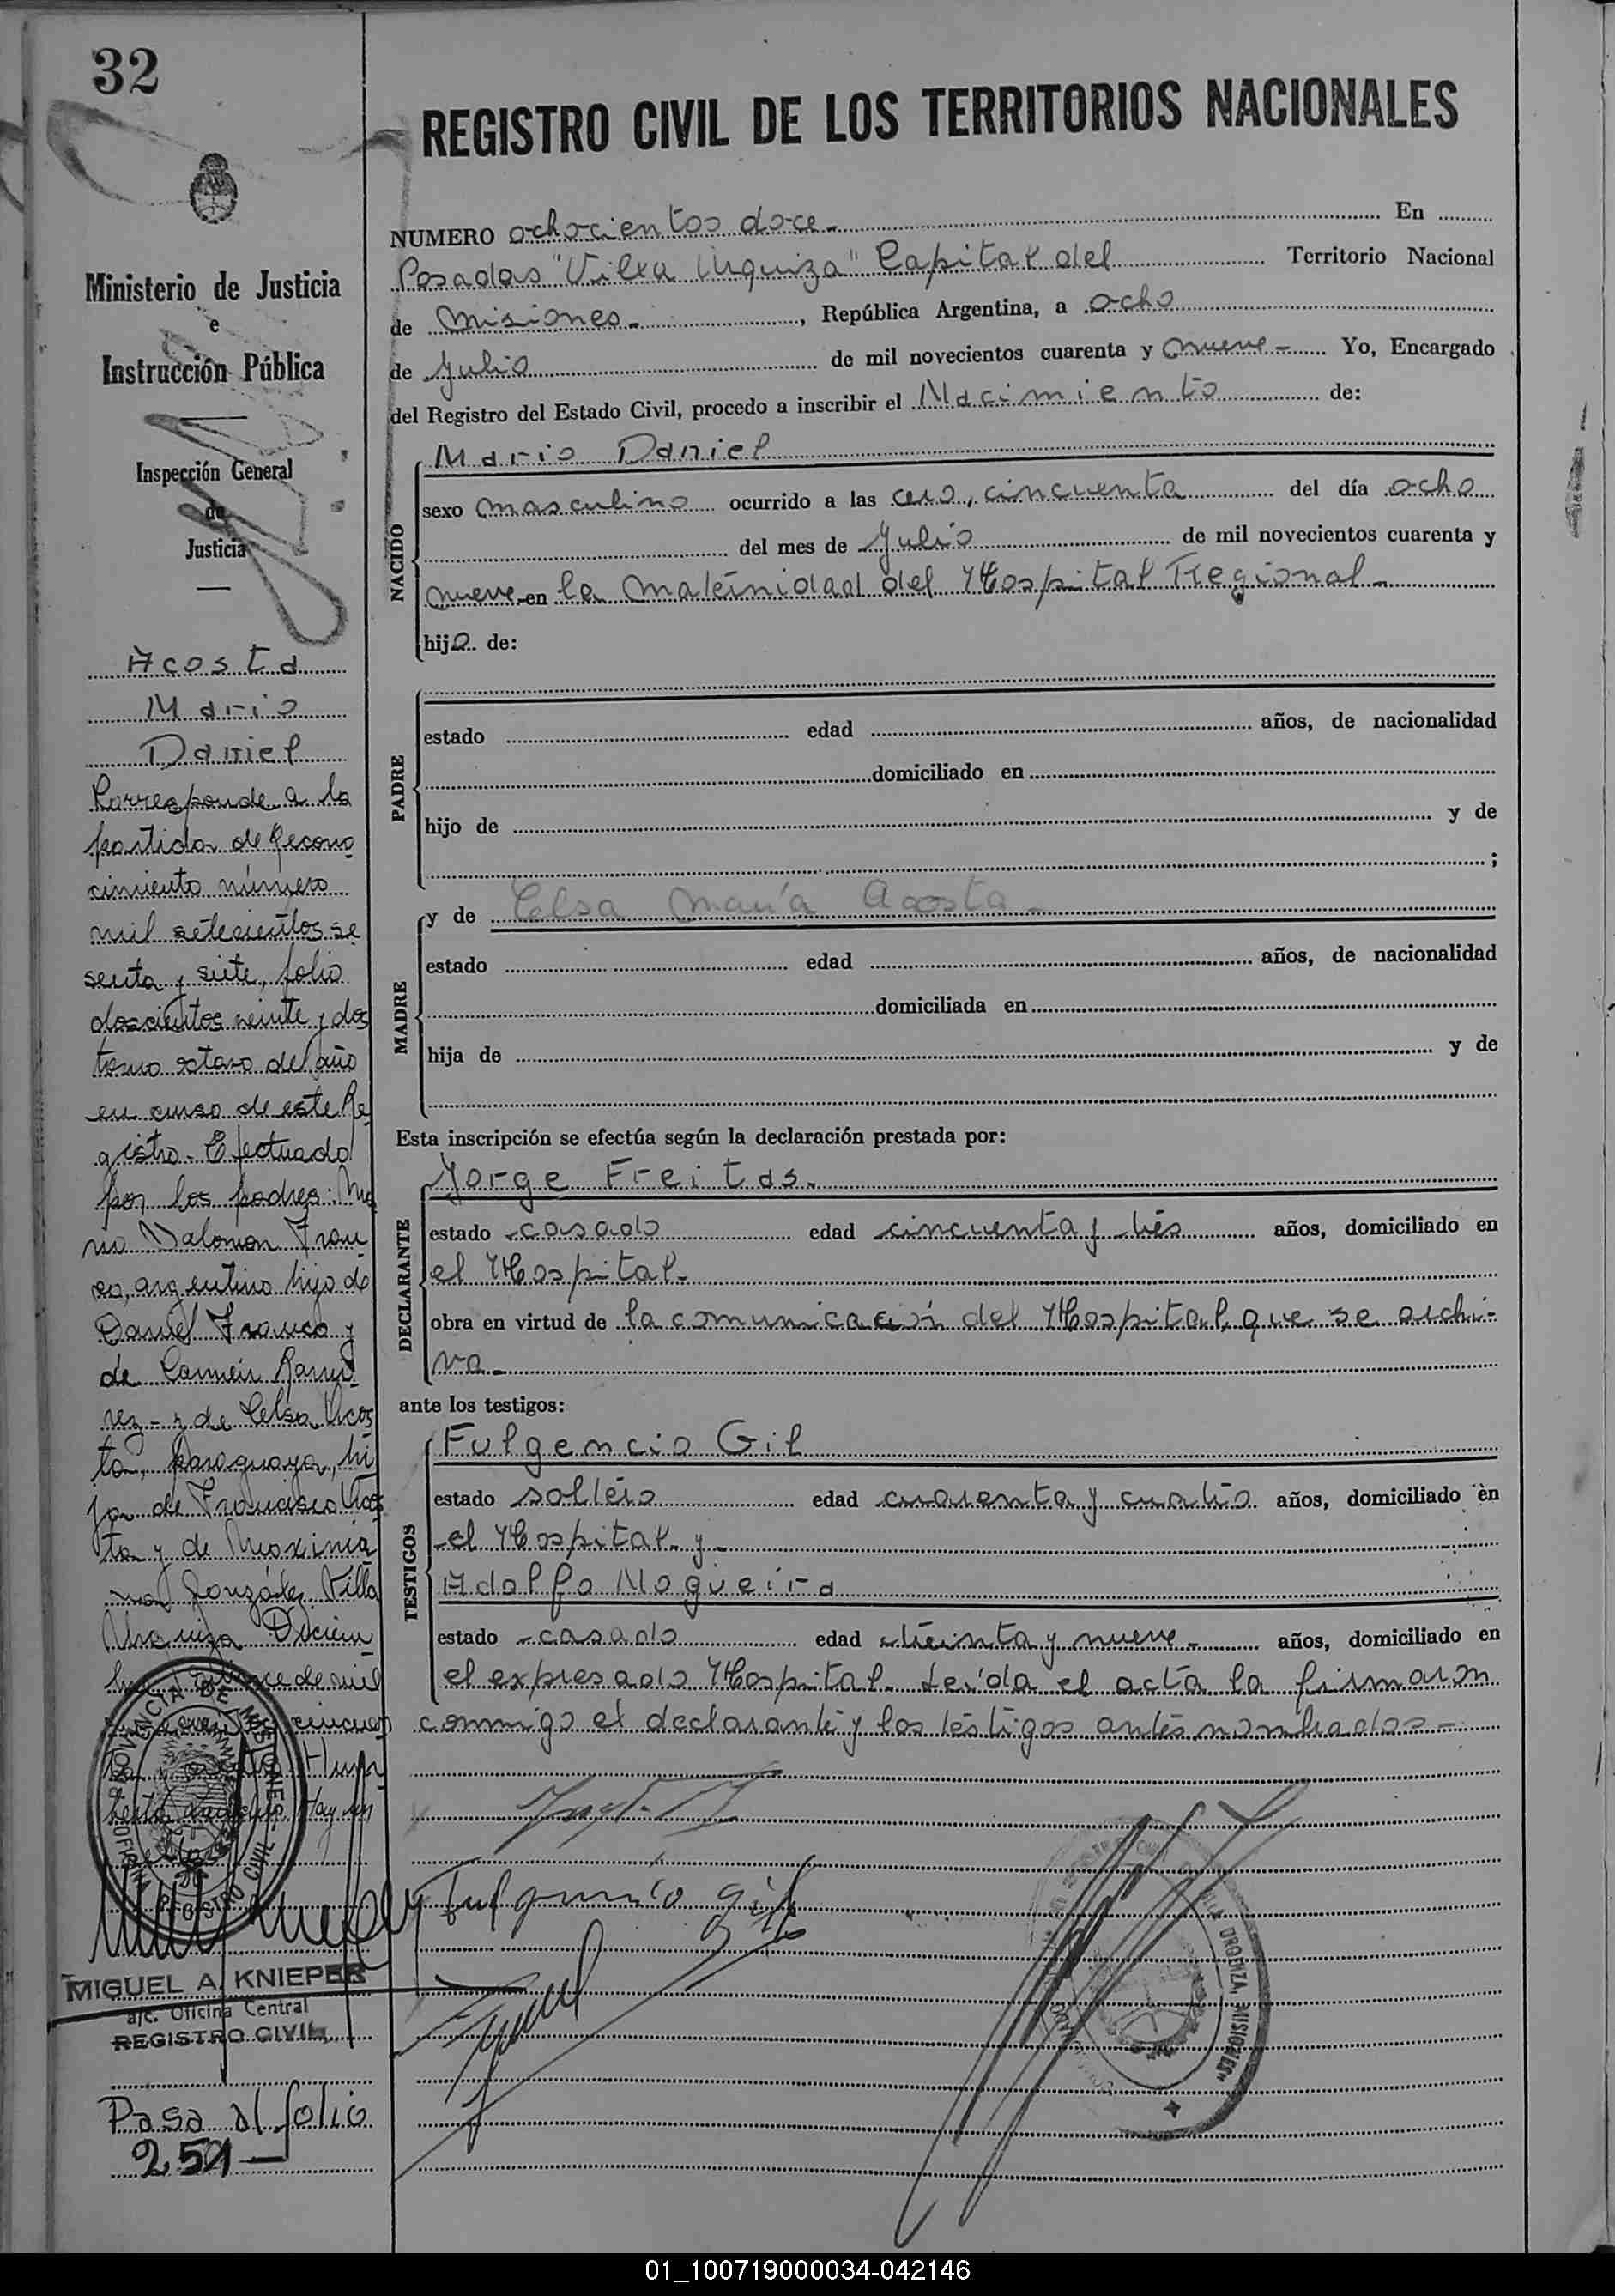 32
REGISTRO CIVIL DE LOS TERRITORIOS NACIONALES
Ministerio de Justicia
e
Instrucción Pública
Inspección General
de
Justicia
Acosta
Mario
Daniel
Corresponde a la
partida de Recono
cimiento número
mil setecientos se
senta y siete, folio
doscientos veinte y dos
tomo octavo del año
en curso de este Re
gistro - Efectuado
por los padres: Ma
rio Salomon Fran
co, argentino hijo de
Daniel Franco y
de Carmen Ramí
rez - y de Celsa Acos
ta, paraguaya, hi
ja de Francisco Acos
ta y de Maximia
na González Villa
Urquiza Diciem
de mil
PROVINCIA DE MISIONES
OFICINA REGISTRO CIVIL
MIGUEL A. KNIEPER
a/c. Oficina Central
REGISTRO CIVIL
Pasa al folio
251 -
NUMERO ochocientos doce - En
Posadas "Villa Urquiza" Capital del Territorio Nacional
de Misiones - , República Argentina, a ocho
de Julio de mil novecientos cuarenta y nueve - Yo, Encargado
del Registro del Estado Civil, procedo a inscribir el Nacimiento de:
NACIDO
Mario Daniel
sexo masculino ocurrido a las cero, cincuenta del día ocho
del mes de Julio de mil novecientos cuarenta y
nueve en la Maternidad del Hospital Regional -
hijo de:
PADRE
estado edad años, de nacionalidad
domiciliado en
hijo de y de
;
MADRE
y de Celsa María Acosta -
estado edad años, de nacionalidad
domiciliada en
hija de y de
Esta inscripción se efectúa según la declaración prestada por:
DECLARANTE
Jorge Freitas.
estado casado edad cincuenta y tres años, domiciliado en
el Hospital -
obra en virtud de la comunicación del Hospital, que se archi-
va -
ante los testigos:
TESTIGOS
Fulgencio Gil
estado soltero edad cuarenta y cuatro años, domiciliado en
el Hospital - y -
Adolfo Nogueira
estado casado edad treinta y nueve - años, domiciliado en
el expresado Hospital. Leída el acta la firmaron
conmigo el declarante y los testigos antes nombrados -
Fulgencio Gil
VILLA URQUIZA, MISIONES
01_100719000034-042146